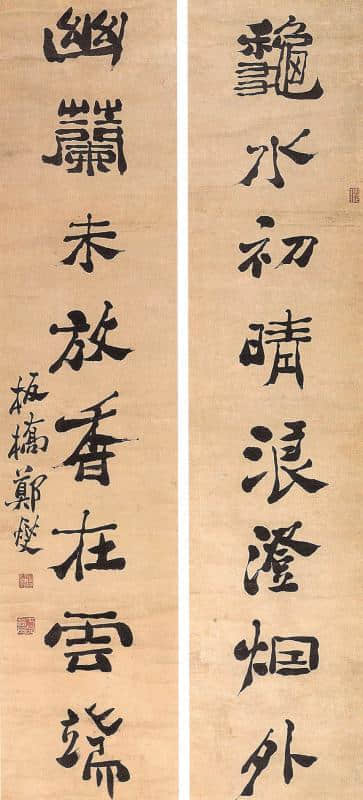 龝水初晴浪澄烟外
幽蘭未放香在雲端
板橋鄭燮